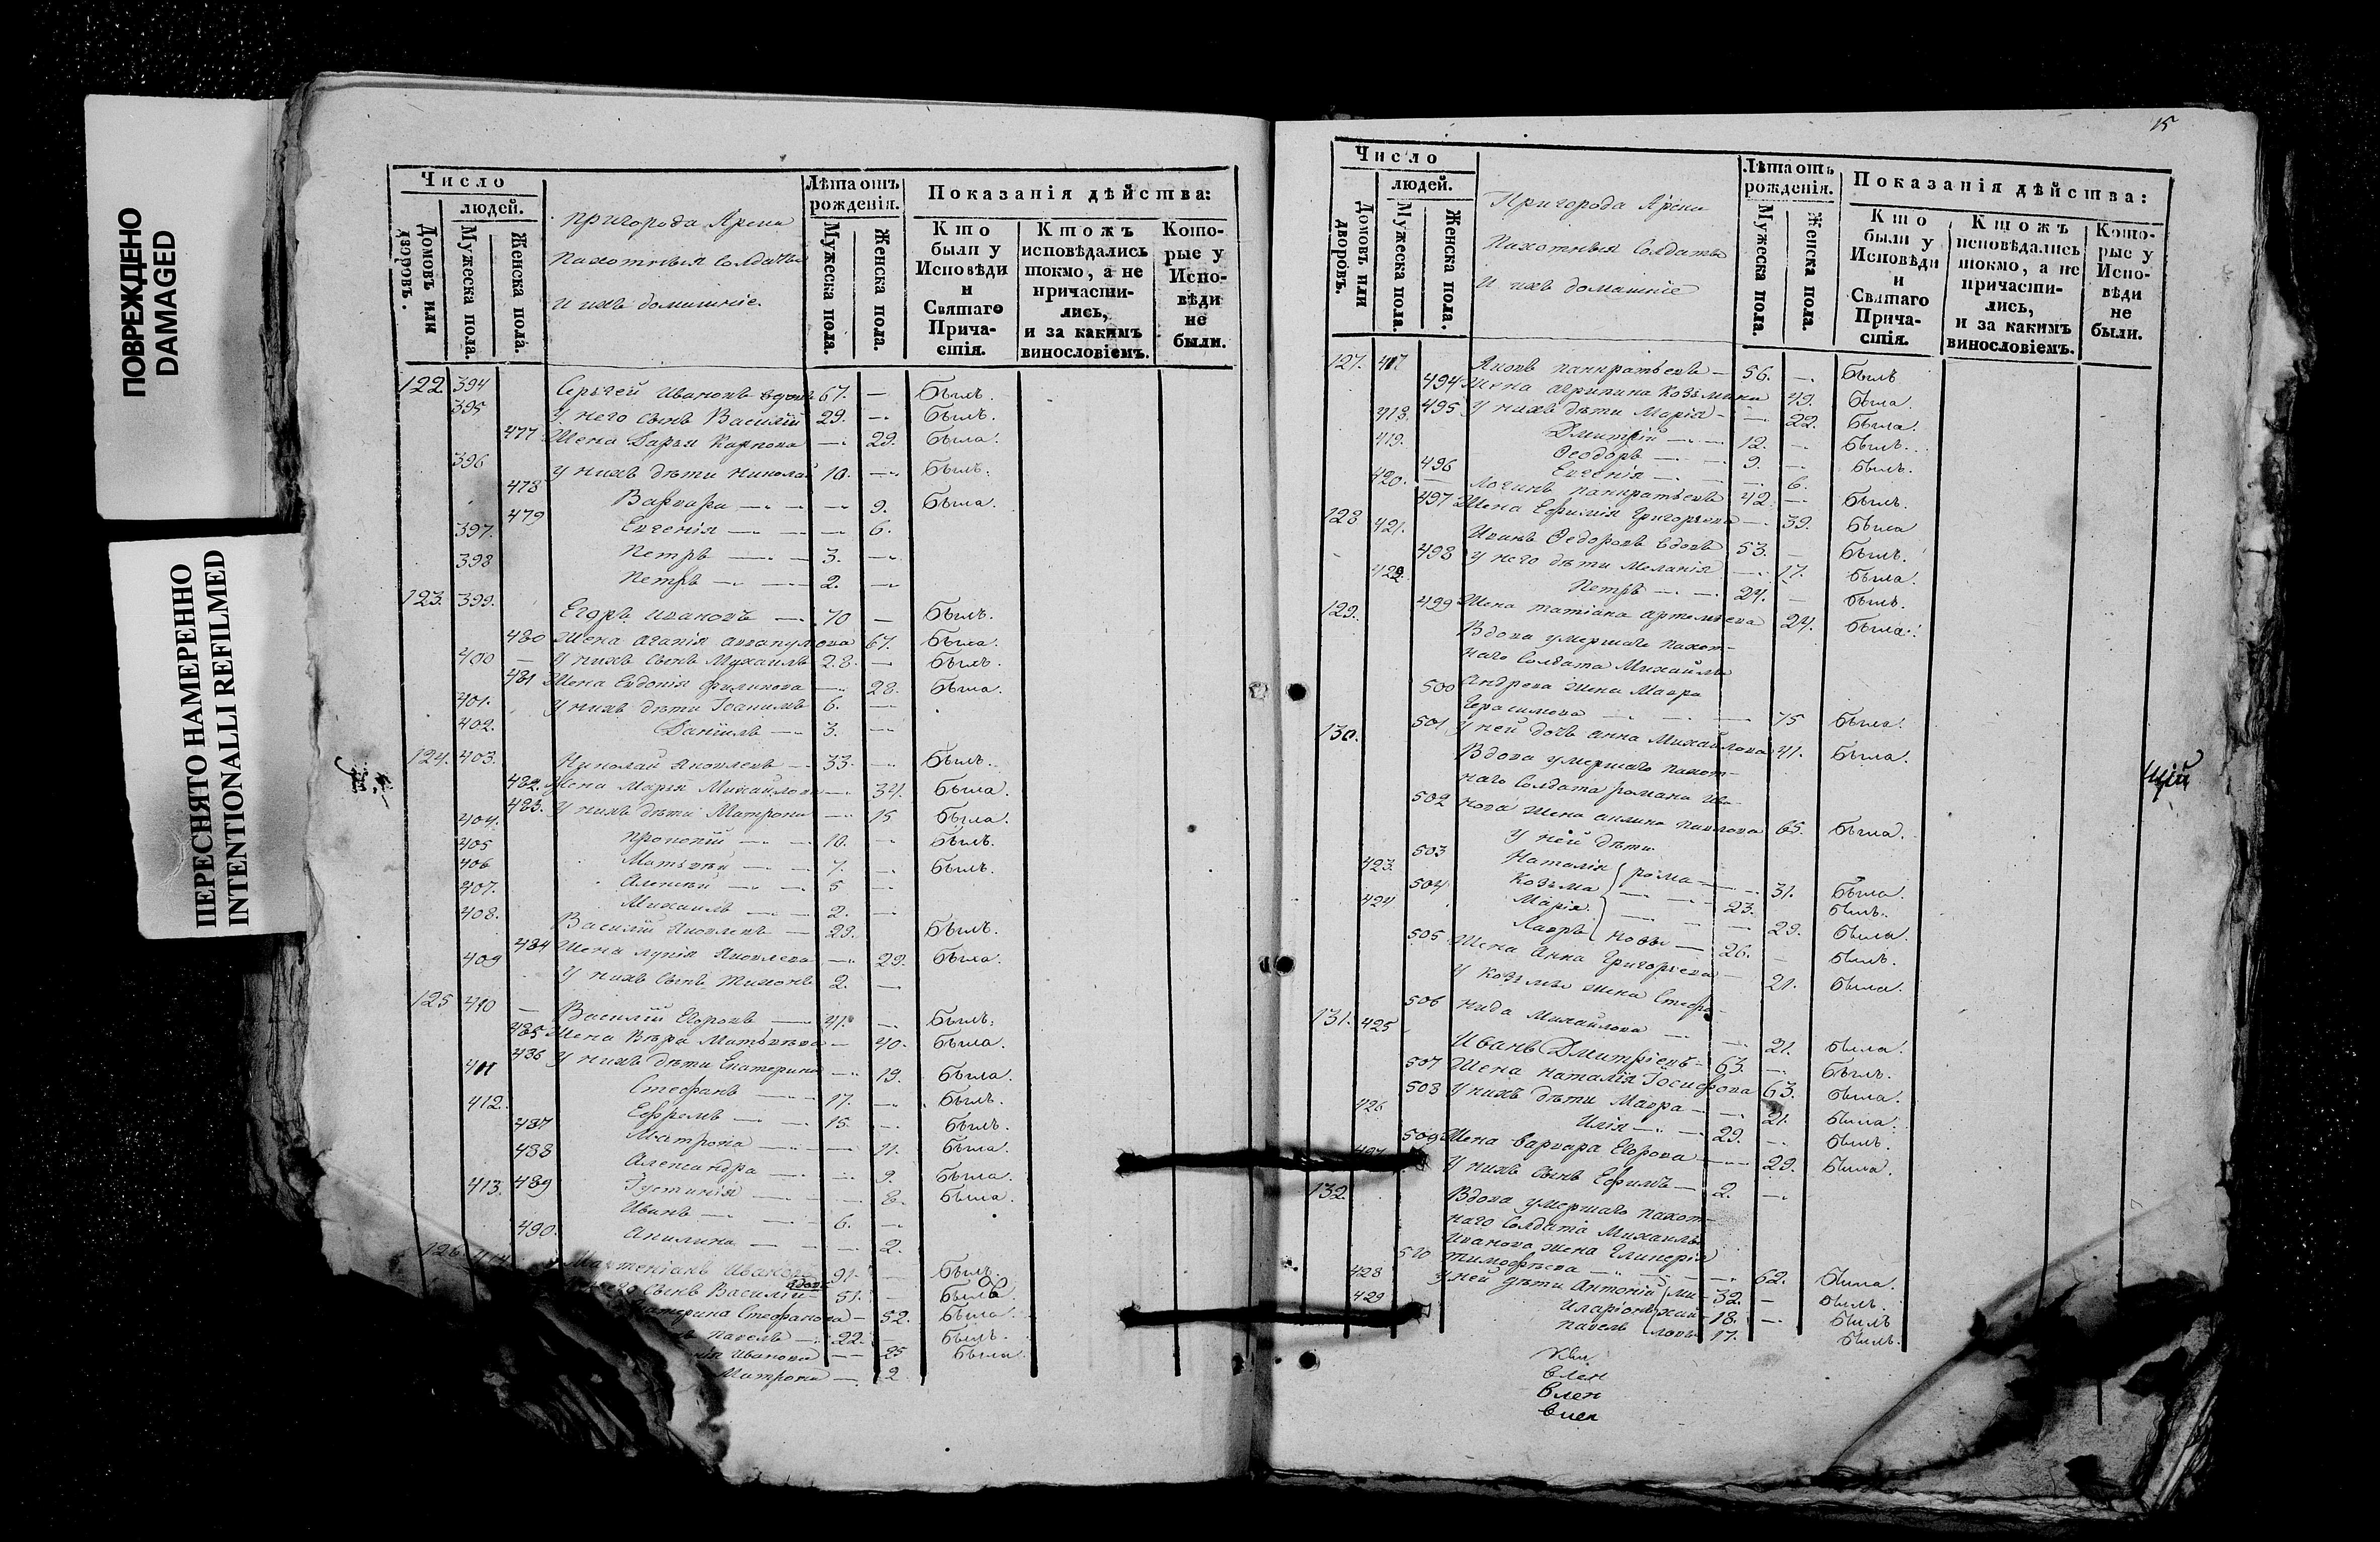 ПОВРЕЖДЕНО
DAMAGED
ПЕРЕСНЯТО НАМЕРЕННО
INTENTIONALLI REFILMED
Число
людей.
Домовъ или дворовъ.
Мужеска пола.
Женска пола.
пригорода Арска
Пахотныя Солдаты
и ихъ домашніе.
Лѣта отъ рожденія.
Мужеска пола.
Женска пола.
Показанія дѣйства:
Кто были у Исповѣди и Святаго Причастія.
Ктожъ исповѣдались токмо, а не причастились, и за какимъ винословіемъ.
Которые у Исповѣди не были.
122 394 Сергей Ивановъ вдовъ 67. — Былъ.
395 У него сынъ Василій 29. — Былъ.
477 Жена Дарья Карпова — 29. Была.
396 У нихъ дѣти Николай 10. — Былъ.
478 Варвара — 9. Была.
479 Евгенія — 6.
397. Петръ — 3. —
398 Петръ — 2. —
123. 399. Егоръ Ивановъ — 70 — Былъ.
480 Жена Агапія 67. Была.
400 У нихъ сынъ Михаилъ 28. — Былъ.
481 Жена Евдокія Филипова — 28. Была.
401. У нихъ дѣти Іоакимъ 6. —
402. Даніилъ — 3. —
124. 403. Николай Яковлевъ — 33. — Былъ.
482. Жена Марья Михайлова — 34. Была.
483. У нихъ дѣти Матрона — 15. Была.
404. Прокопій — 10. — Былъ.
405 Матвѣй — 7. — Былъ.
406 Алексѣй — 5 —
407. Михаилъ — 2. —
408. Василій Яковлевъ — 29. Былъ.
484 Жена Лукія Яковлева — 29. Была.
409 У нихъ сынъ Тихонъ 2. —
125 410 — Василій Егоровъ — 41. — Былъ.
485 Жена Вѣра Матвѣева — 40. Была.
486 У нихъ дѣти Екатерина — 19. Была.
411 Стефанъ — 17. — Былъ.
412. Ефремъ — 15. — Былъ.
487 Матрона — 11. Была.
488 Александра — 9. Была.
489 Іустинія — 8. Была.
413. Иванъ — 6. —
490. Акилина — 2.
126. 414 Мартеніанъ Ивановъ вдовъ 91. — Былъ.
сынъ Василій 51. — Былъ
Катерина Стефанова — 52. Была.
Павелъ — 22. — Былъ.
Иванова — 25 Была
Матрона — 2
15
Число
людей.
Домовъ или дворовъ.
Мужеска пола.
Женска пола.
Пригорода Арска
Пахотныя Солдаты
и ихъ домашніе
Лѣта отъ рожденія.
Мужеска пола.
Женска пола.
Показанія дѣйства:
Кто были у Исповѣди и Святаго Причастія.
Ктожъ исповѣдались токмо, а не причастились, и за какимъ винословіемъ.
Которые у Исповѣди не были.
127. 417 Яковъ Панкратьевъ — 56. — Былъ
494 Жена Агрипина Козьмина 49. Была.
495 У нихъ дѣти Марія — 22. Была.
418. Дмитрій — 12. — Былъ.
419. Ѳеодоръ — 9. — Былъ.
496 Евгенія — 6.
420. — Логинъ Панкратьевъ 42. — Былъ.
497 Жена Ефимія Григорьева — 39. Была
128 421. Иванъ Ѳедоровъ вдовъ 53. — Былъ.
498 У него дѣти Меланія — 17. Была.
422. Петръ — 24. — Былъ.
499 Жена Татіана Артемьева 24. Была.
129. Вдова умершаго пахот-
наго Солдата Михаила
Андреева жена Мавра
500 Герасимова — 75 Была.
501 У ней дочь Анна Михайлова 41. Была.
130. Вдова умершаго пахот-
наго Солдата Романа Ива-
502 нова жена Акилина Павлова 65. Была.
У ней дѣти
503 Наталія Рома — 31. Была.
423. Козьма — 23. Былъ.
504 Марія — 29. Была.
424 Лавръ новы — 26. — Былъ.
505 Жена Анна Григорьева — 21. Была.
У Козьмы жена Стефа-
506 нида Михайлова — 21. Была.
131. 425 Иванъ Дмитріевъ — 63. — Былъ.
507 Жена Наталія Іосифова 63. Была.
508 У нихъ дѣти Мавра — 21. Была.
426 Илія — 29. — Былъ.
509 Жена Варвара Егорова — 29. Была.
427 У нихъ сынъ Ефимъ — 2. —
132. Вдова умершаго пахот-
наго Солдата Михаила
Иванова жена Гликерія
510 Тимофѣева — 62. Была.
428 У ней дѣти Антоній Ми- 32. — Былъ.
429 Иларіонъ хай- 18. — Былъ
Павелъ ловы 17. Былъ.
щій
влен
влен